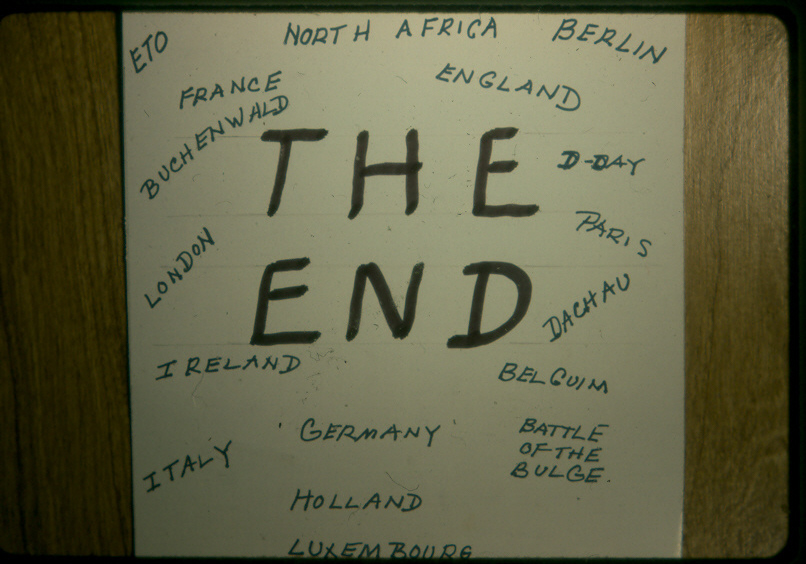 ETO
NORTH AFRICA
BERLIN
FRANCE
ENGLAND
BUCHENWALD
THE
D-DAY
PARIS
LONDON
END
DACHAU
IRELAND
BELGUIM
GERMANY
BATTLE
OF THE
BULGE.
ITALY
HOLLAND
LUXEMBOURG